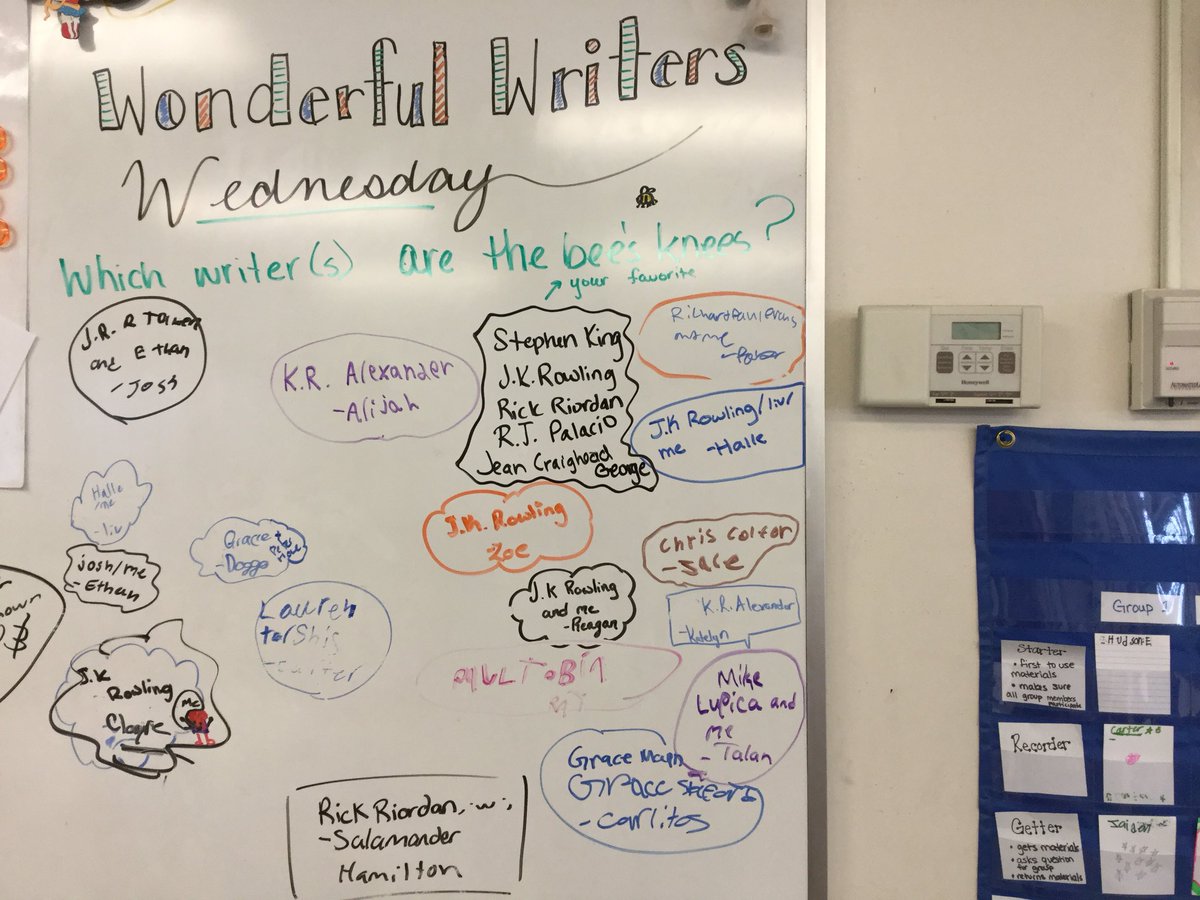 Wonderful Writers
Wednesday
Which writer(s) are the bee's knees?
your favorite
J.R.R Tolken
and Ethan
-Joss
K.R. Alexander
-Alijah
Stephen King
J.K. Rowling
Rick Riordan
R.J. Palacio
Jean Craighead
George
me
J.K Rowling/liv/
me -Halle
Halle
/me
-liv
Grace
-Doggo
J.K. Rowling
-Zoe
Chris Colfer
-Jace
Josh/me
-Ethan
J.K Rowling
and me
-Reagan
K.R. Alexander
-Katelyn
Lauren
tarshis
J.K
Rowling
me
Mike
Lupica and
me
-Talan
Grace
-carlitos
Rick Riordan
-Salamander
Hamilton
Honeywell
Group
Starter
• first to use
materials
• makes sure
all group members
participate
Hudson E
Recorder
Carter
Getter
• gets materials
• asks question
for group
• returns materials